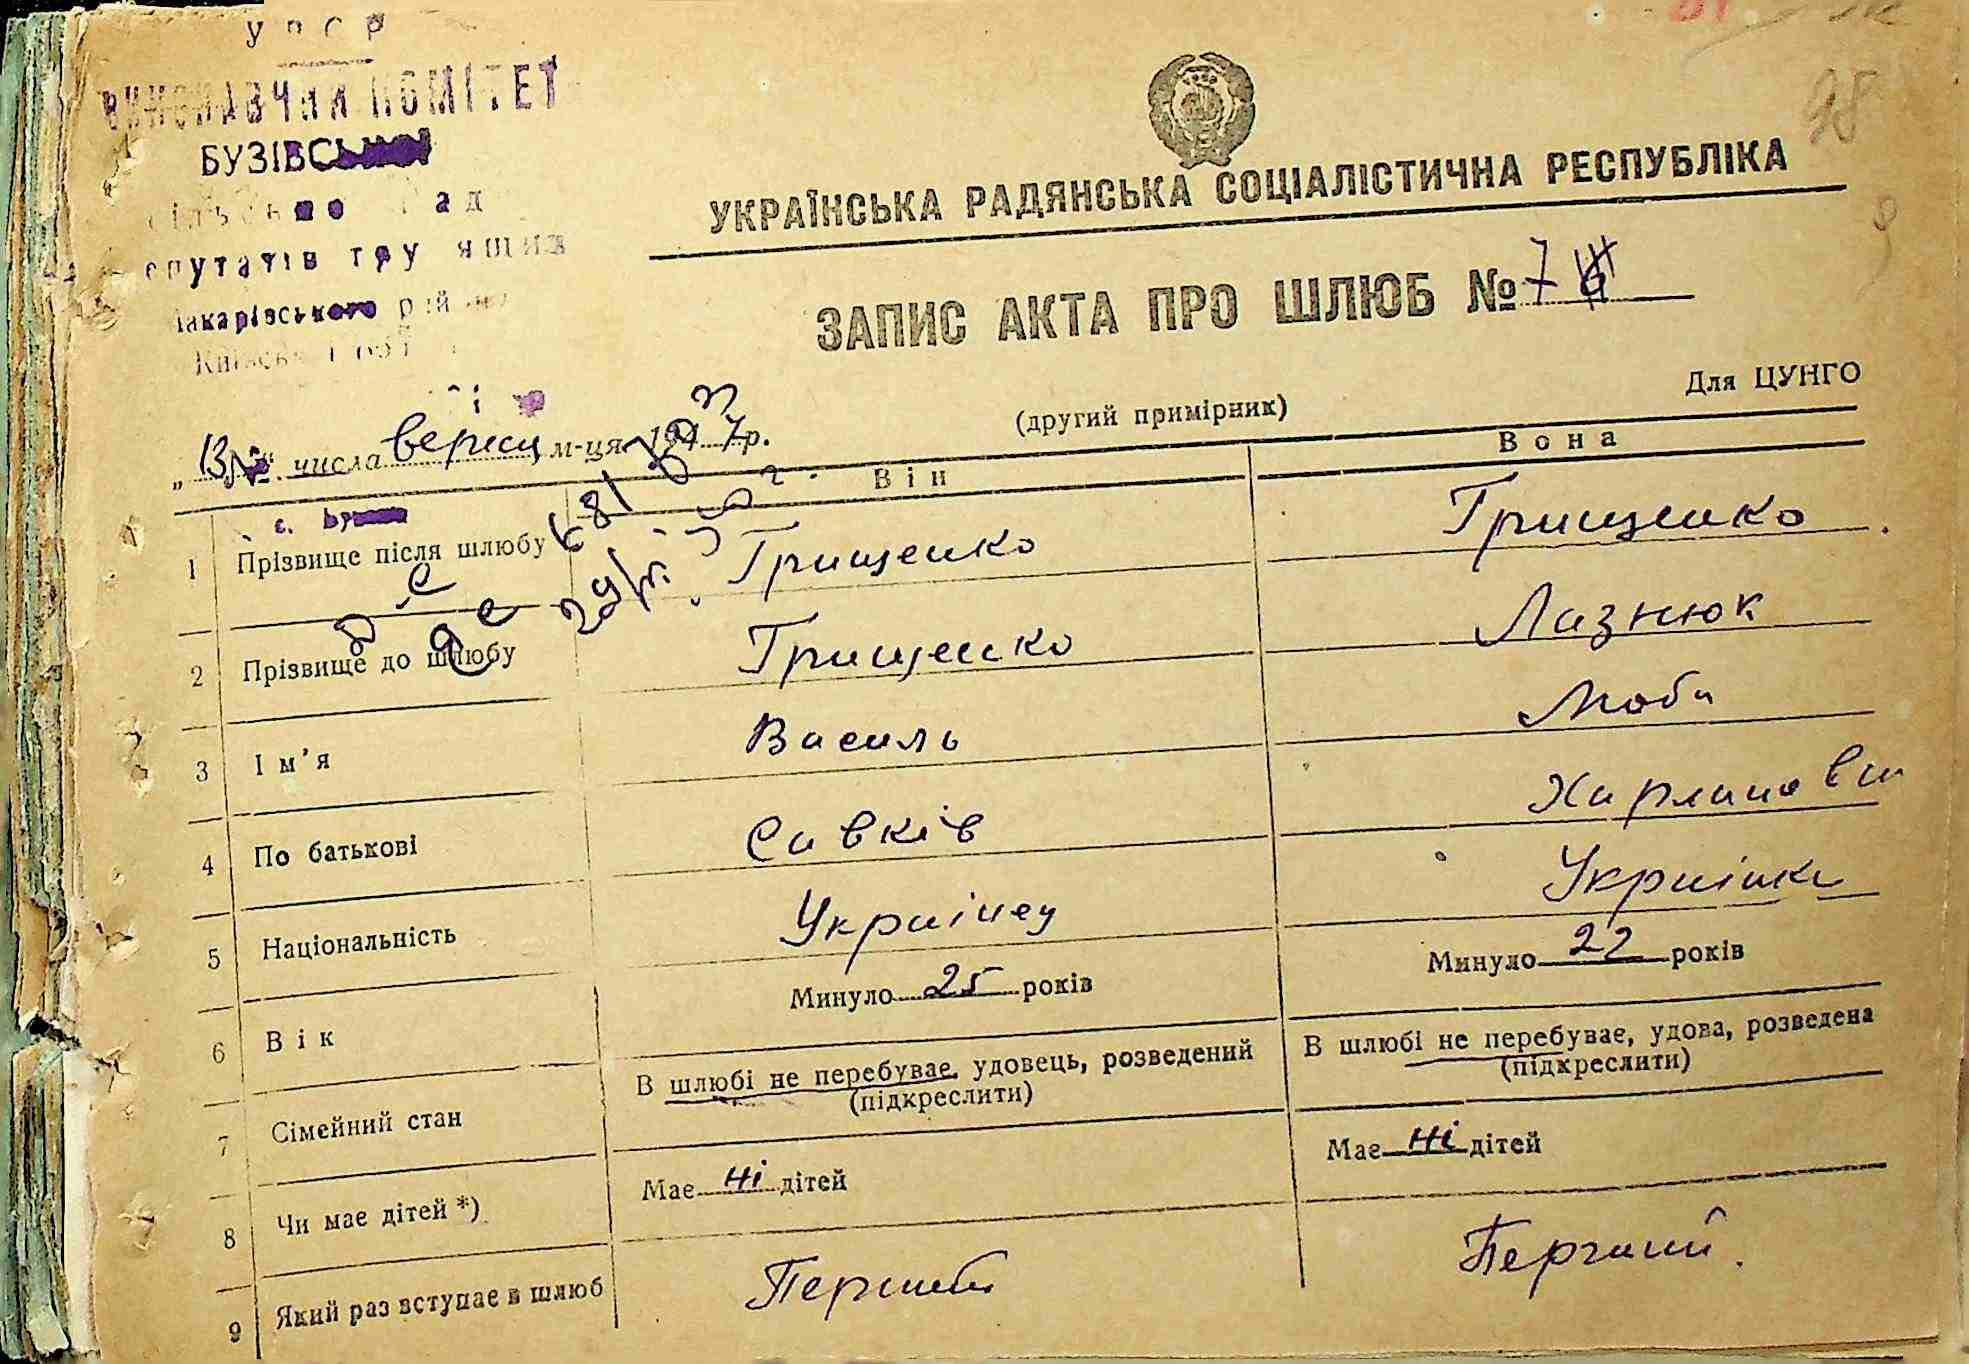 УРСР
ВИКОНАВЧИЙ КОМІТЕТ
БУЗІВСЬКОЇ
Рад
депутатів трудящих
Макарівського району
98
УКРАЇНСЬКА РАДЯНСЬКА СОЦІАЛІСТИЧНА РЕСПУБЛІКА
ЗАПИС АКТА ПРО ШЛЮБ № 7
Для ЦУНГО
(другий примірник)
„13“ числа вересн м-ця 1947 р.
Він Вона
1 Прізвище після шлюбу Грищенко Грищенко
2 Прізвище до шлюбу Грищенко Лазнюк
3 Ім'я Василь Люба
4 По батькові Савків Харлановна
5 Національність Українец Українка
6 Вік Минуло 25 років Минуло 22 років
7 Сімейний стан В шлюбі не перебуває, удовець, розведений В шлюбі не перебуває, удова, розведена
(підкреслити) (підкреслити)
8 Чи має дітей *) Має ні дітей Має ні дітей
9 Який раз вступає в шлюб Перший Перший